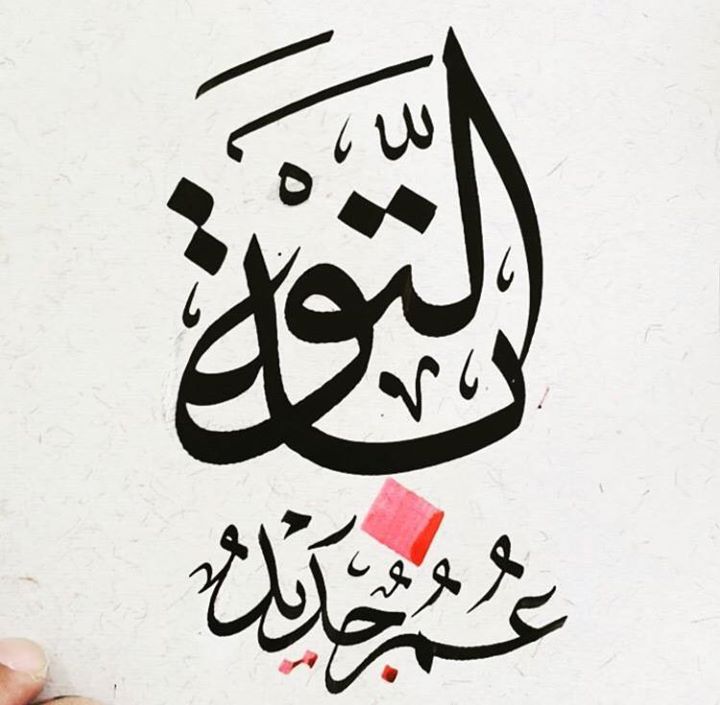 التَّوْبَةُ
عُمُرٌ جَدِيدٌ